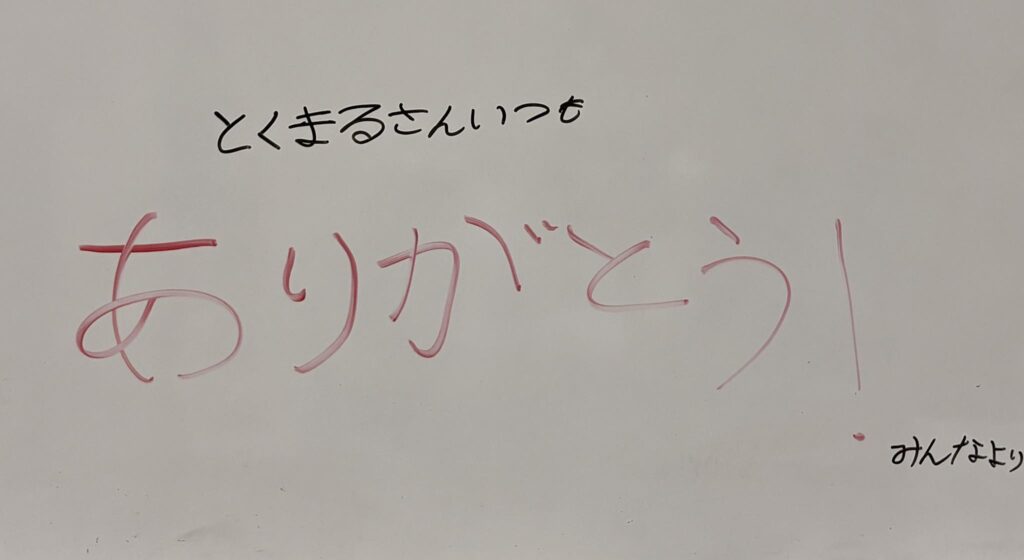 とくまるさんいつも
ありがとう!
みんなより